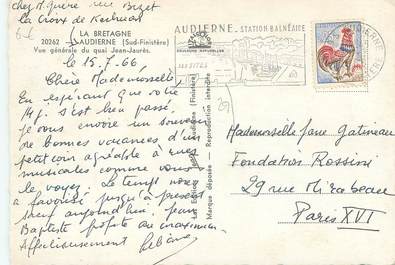 chez M. Guerre rue Bizet
La Croix de Kerhuan
LA BRETAGNE
20262 - AUDIERNE (Sud-Finistère)
Vue générale du quai Jean-Jaurès.
le 15.7.66
Chère Mademoiselle
En espérant que votre
s'est bien passé,
je vous envoie un souvenir
de bonnes vacances d'un
petit coin agréable à vues
musicales comme vous
le voyez. Le temps nous
a favorisé jusqu'à présent
sauf aujourd'hui. Jean
Baptiste profite au maximum.
Affectueusement
Les Editions (Finistère)
Marque déposée - Reproduction interdite
AUDIERNE - STATION BALNÉAIRE
SES SITES
AUDIERNE
Mademoiselle Jane Gatineau
Fondation Rossini
29 rue Mirabeau
Paris XVI